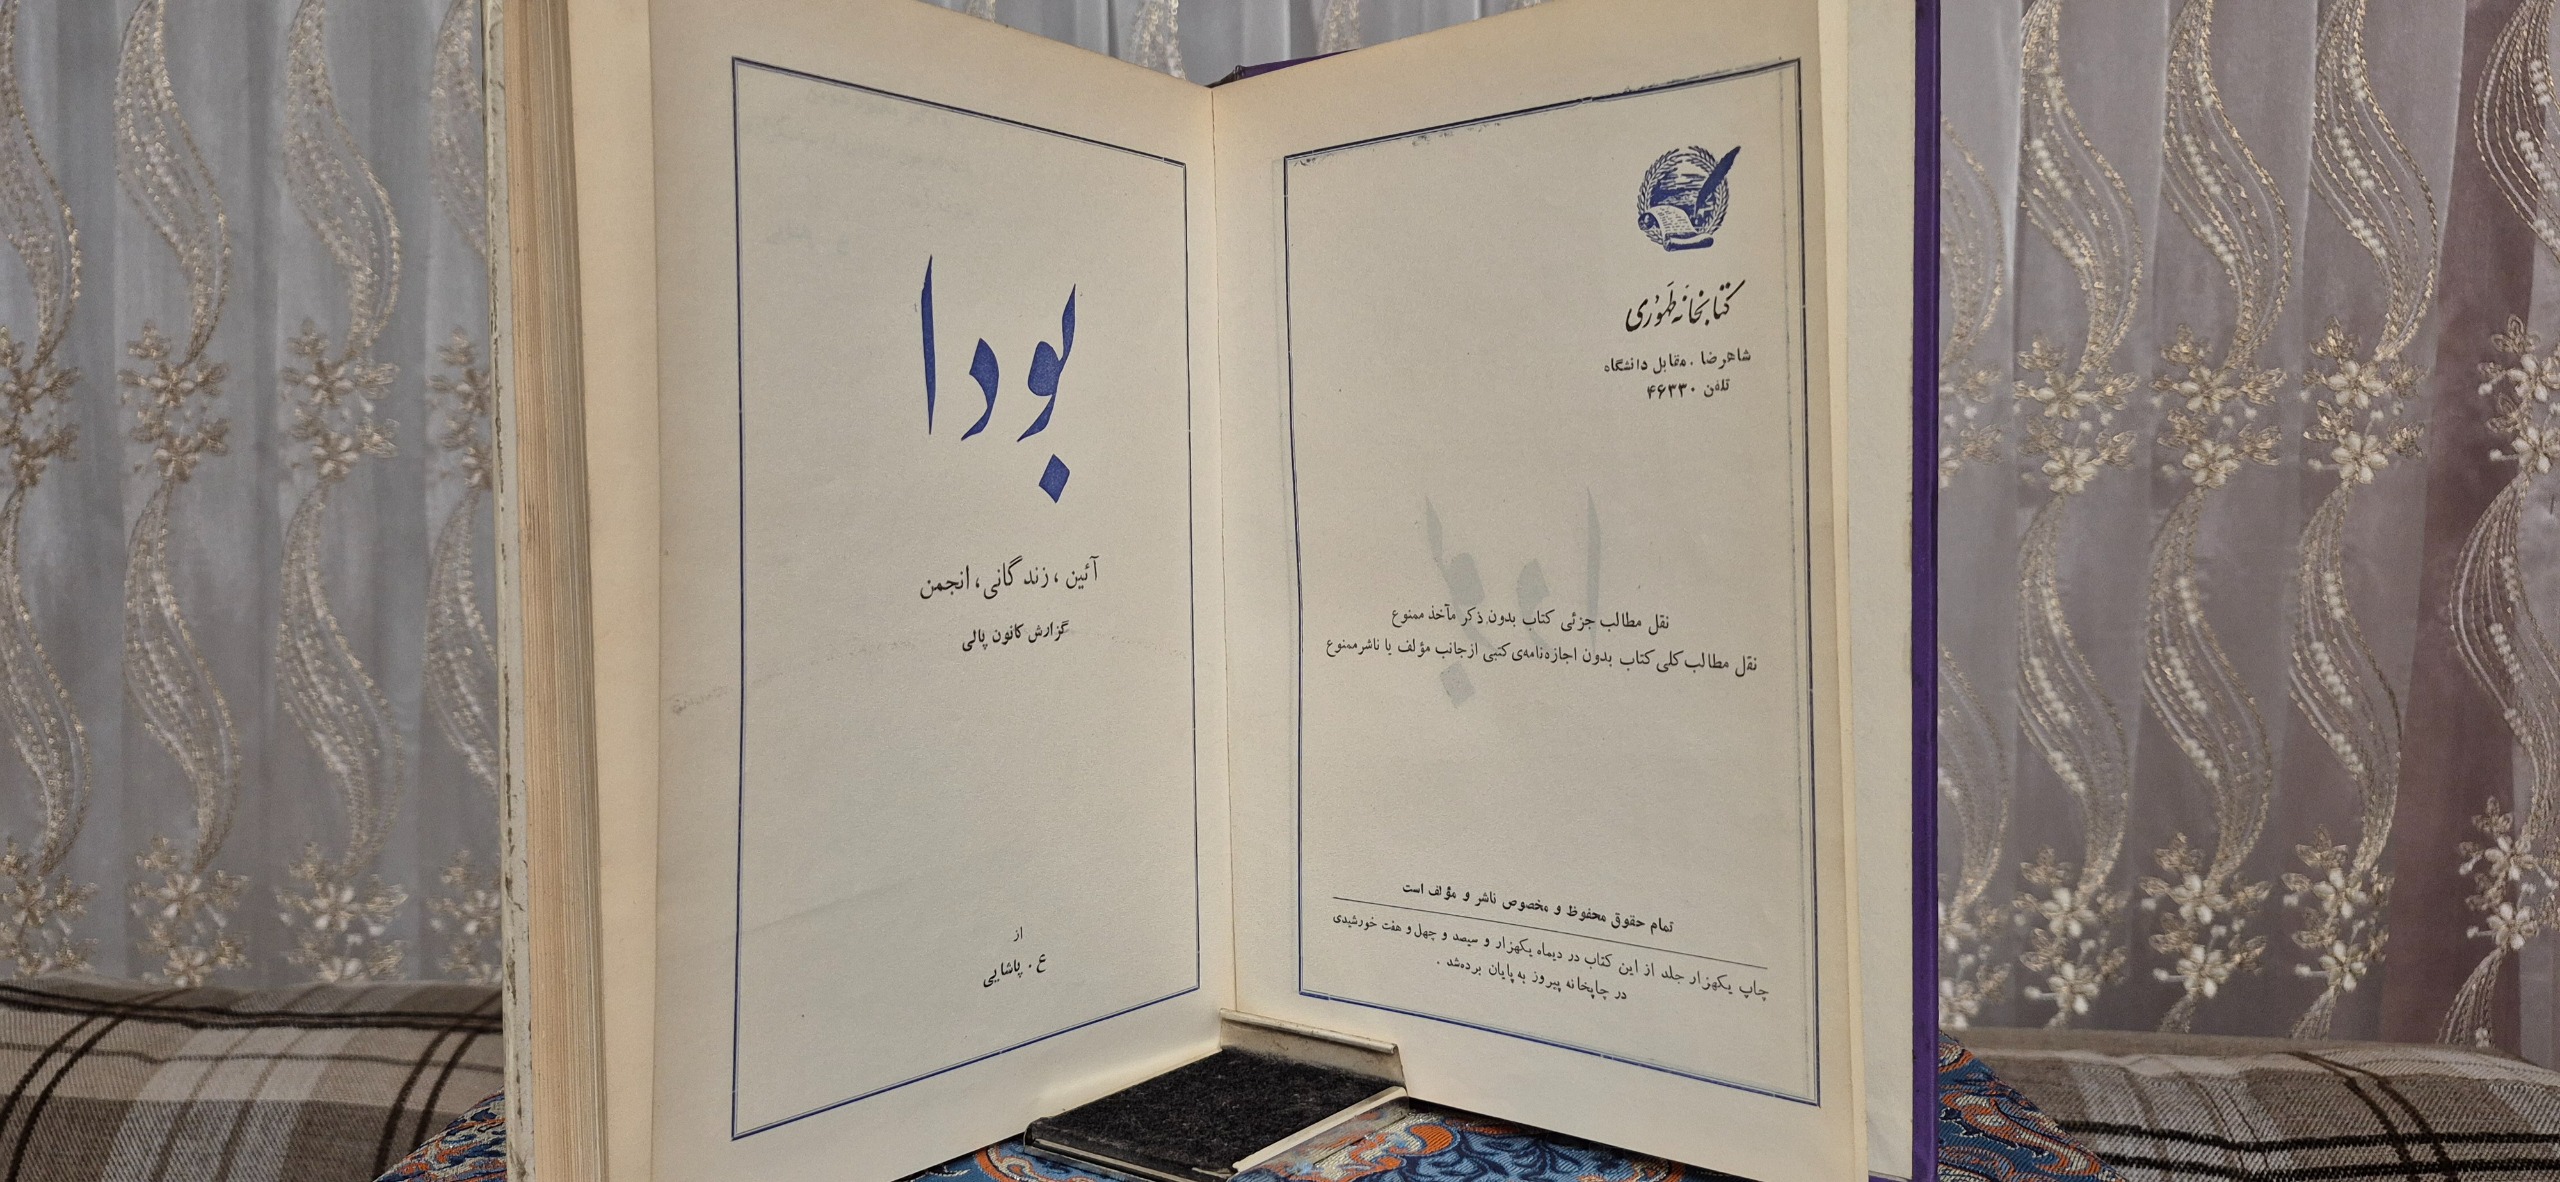 کتابخانه طَهوُری
شاهرضا . مقابل دانشگاه
تلفن ۴۶۳۳۰
نقل مطالب جزئی کتاب بدون ذکر مآخذ ممنوع
نقل مطالب کلی کتاب بدون اجازه‌نامه‌ی کتبی ازجانب مؤلف یا ناشر ممنوع
تمام حقوق محفوظ و مخصوص ناشر و مؤلف است
چاپ یکهزار جلد از این کتاب در دیماه یکهزار و سیصد و چهل و هفت خورشیدی
در چاپخانه پیروز به پایان برده‌شد .
بودا
آئین ، زندگانی ، انجمن
گزارش کانون پالی
از
ع . پاشایی